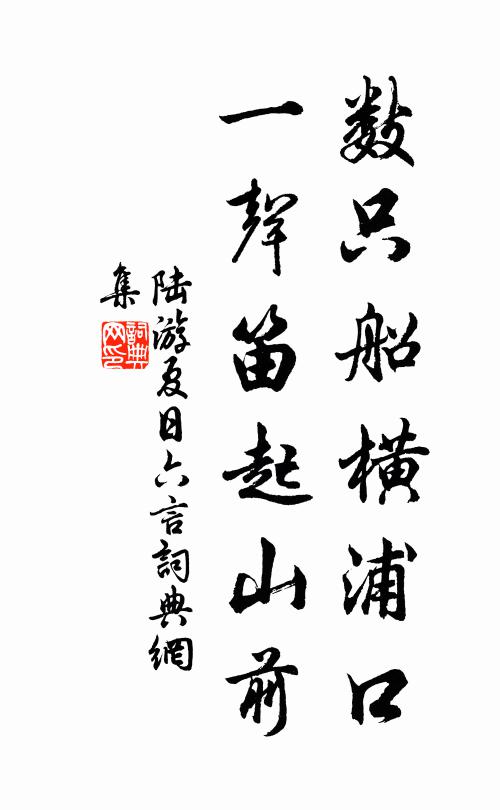 数只船橫浦口
一聲笛起山前
陆游夏日六言詞典網
集
詞典
网印